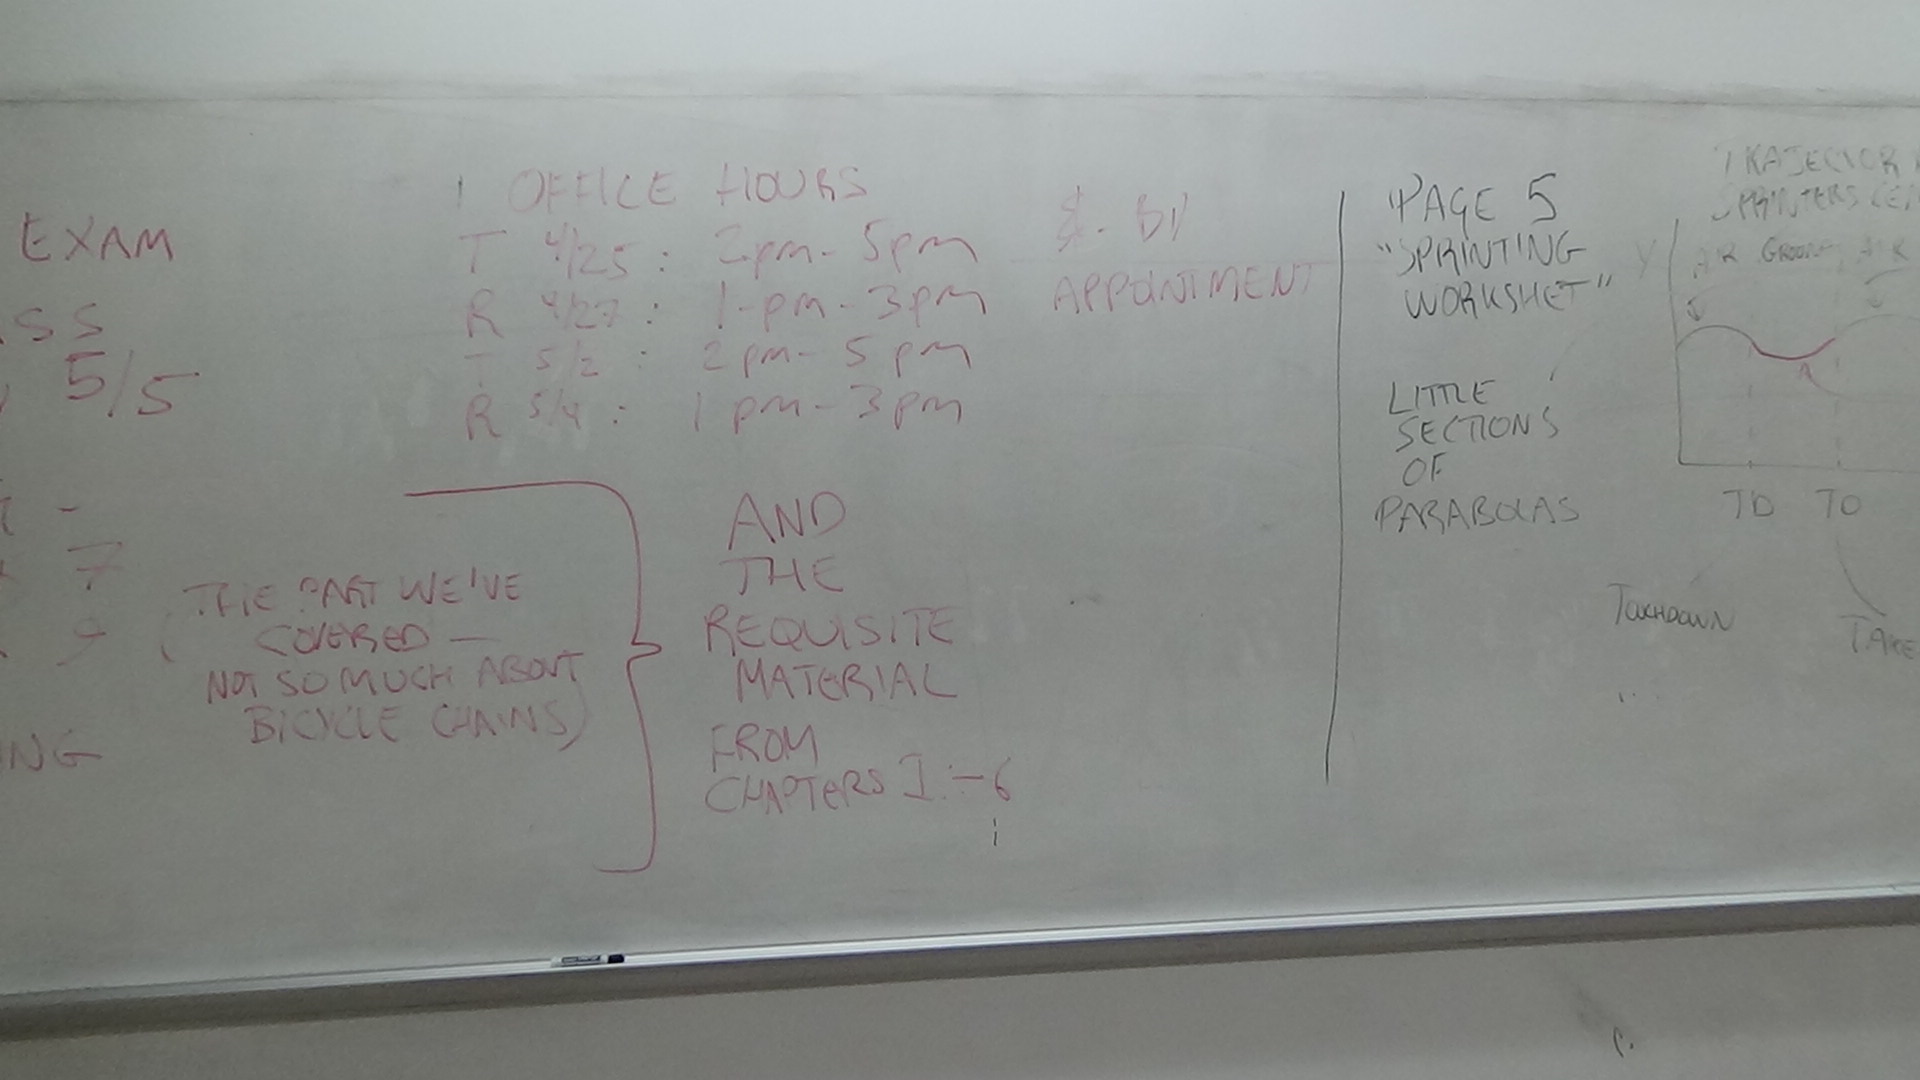 EXAM
SS
5/5
7
NG
OFFICE HOURS
T 4/25 : 2pm - 5pm
R 4/27 : 1-pm - 3pm
T 5/2 : 2pm - 5pm
R 5/4 : 1pm - 3pm
&. BY
APPOINTMENT
(THE PART WE'VE
COVERED —
NOT SO MUCH ABOUT
BICYCLE CHAINS)
AND
THE
REQUISITE
MATERIAL
FROM
CHAPTERS 1 - 6
PAGE 5
"SPRINTING
WORKSHET"
LITTLE
SECTIONS
OF
PARABOLAS
TRAJECTOR
SPRINTERS CE
Y AIR GROUND AIR
TD TO
TOUCHDOWN
TAKE